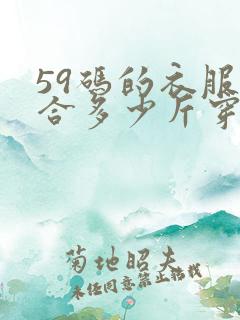 59碼的衣服
合多少斤穿
菊地昭夫
未经同意禁止转载